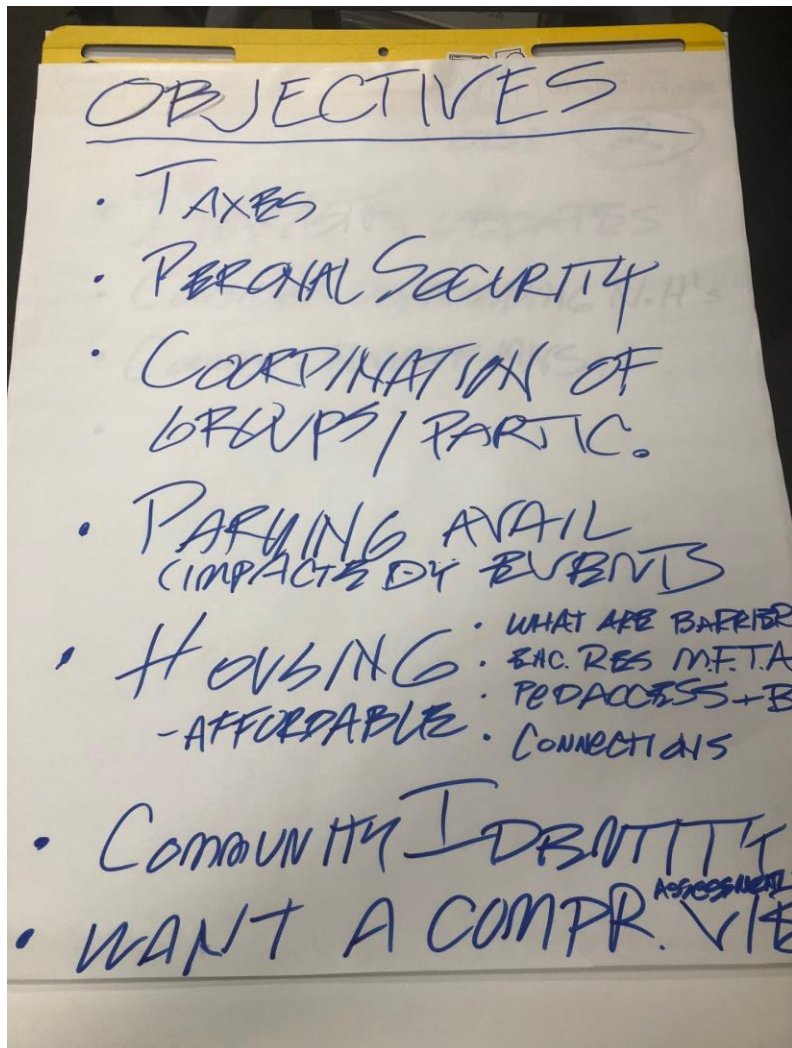 OBJECTIVES
• TAXES
• PERONAL SECURITY
• COORDINATION OF
GROUPS/ PARTIC.
• PARKING AVAIL
(IMPACTS BY EVENTS
• HOUSING
- AFFORDABLE
• WHAT ARE BARRIER
ENC. RES M.F.T.A
• PED ACCESS + B
• CONNECTIONS
• COMMUNITY IDENTITY
ASSESSMENT
• WANT A COMPR. VIE